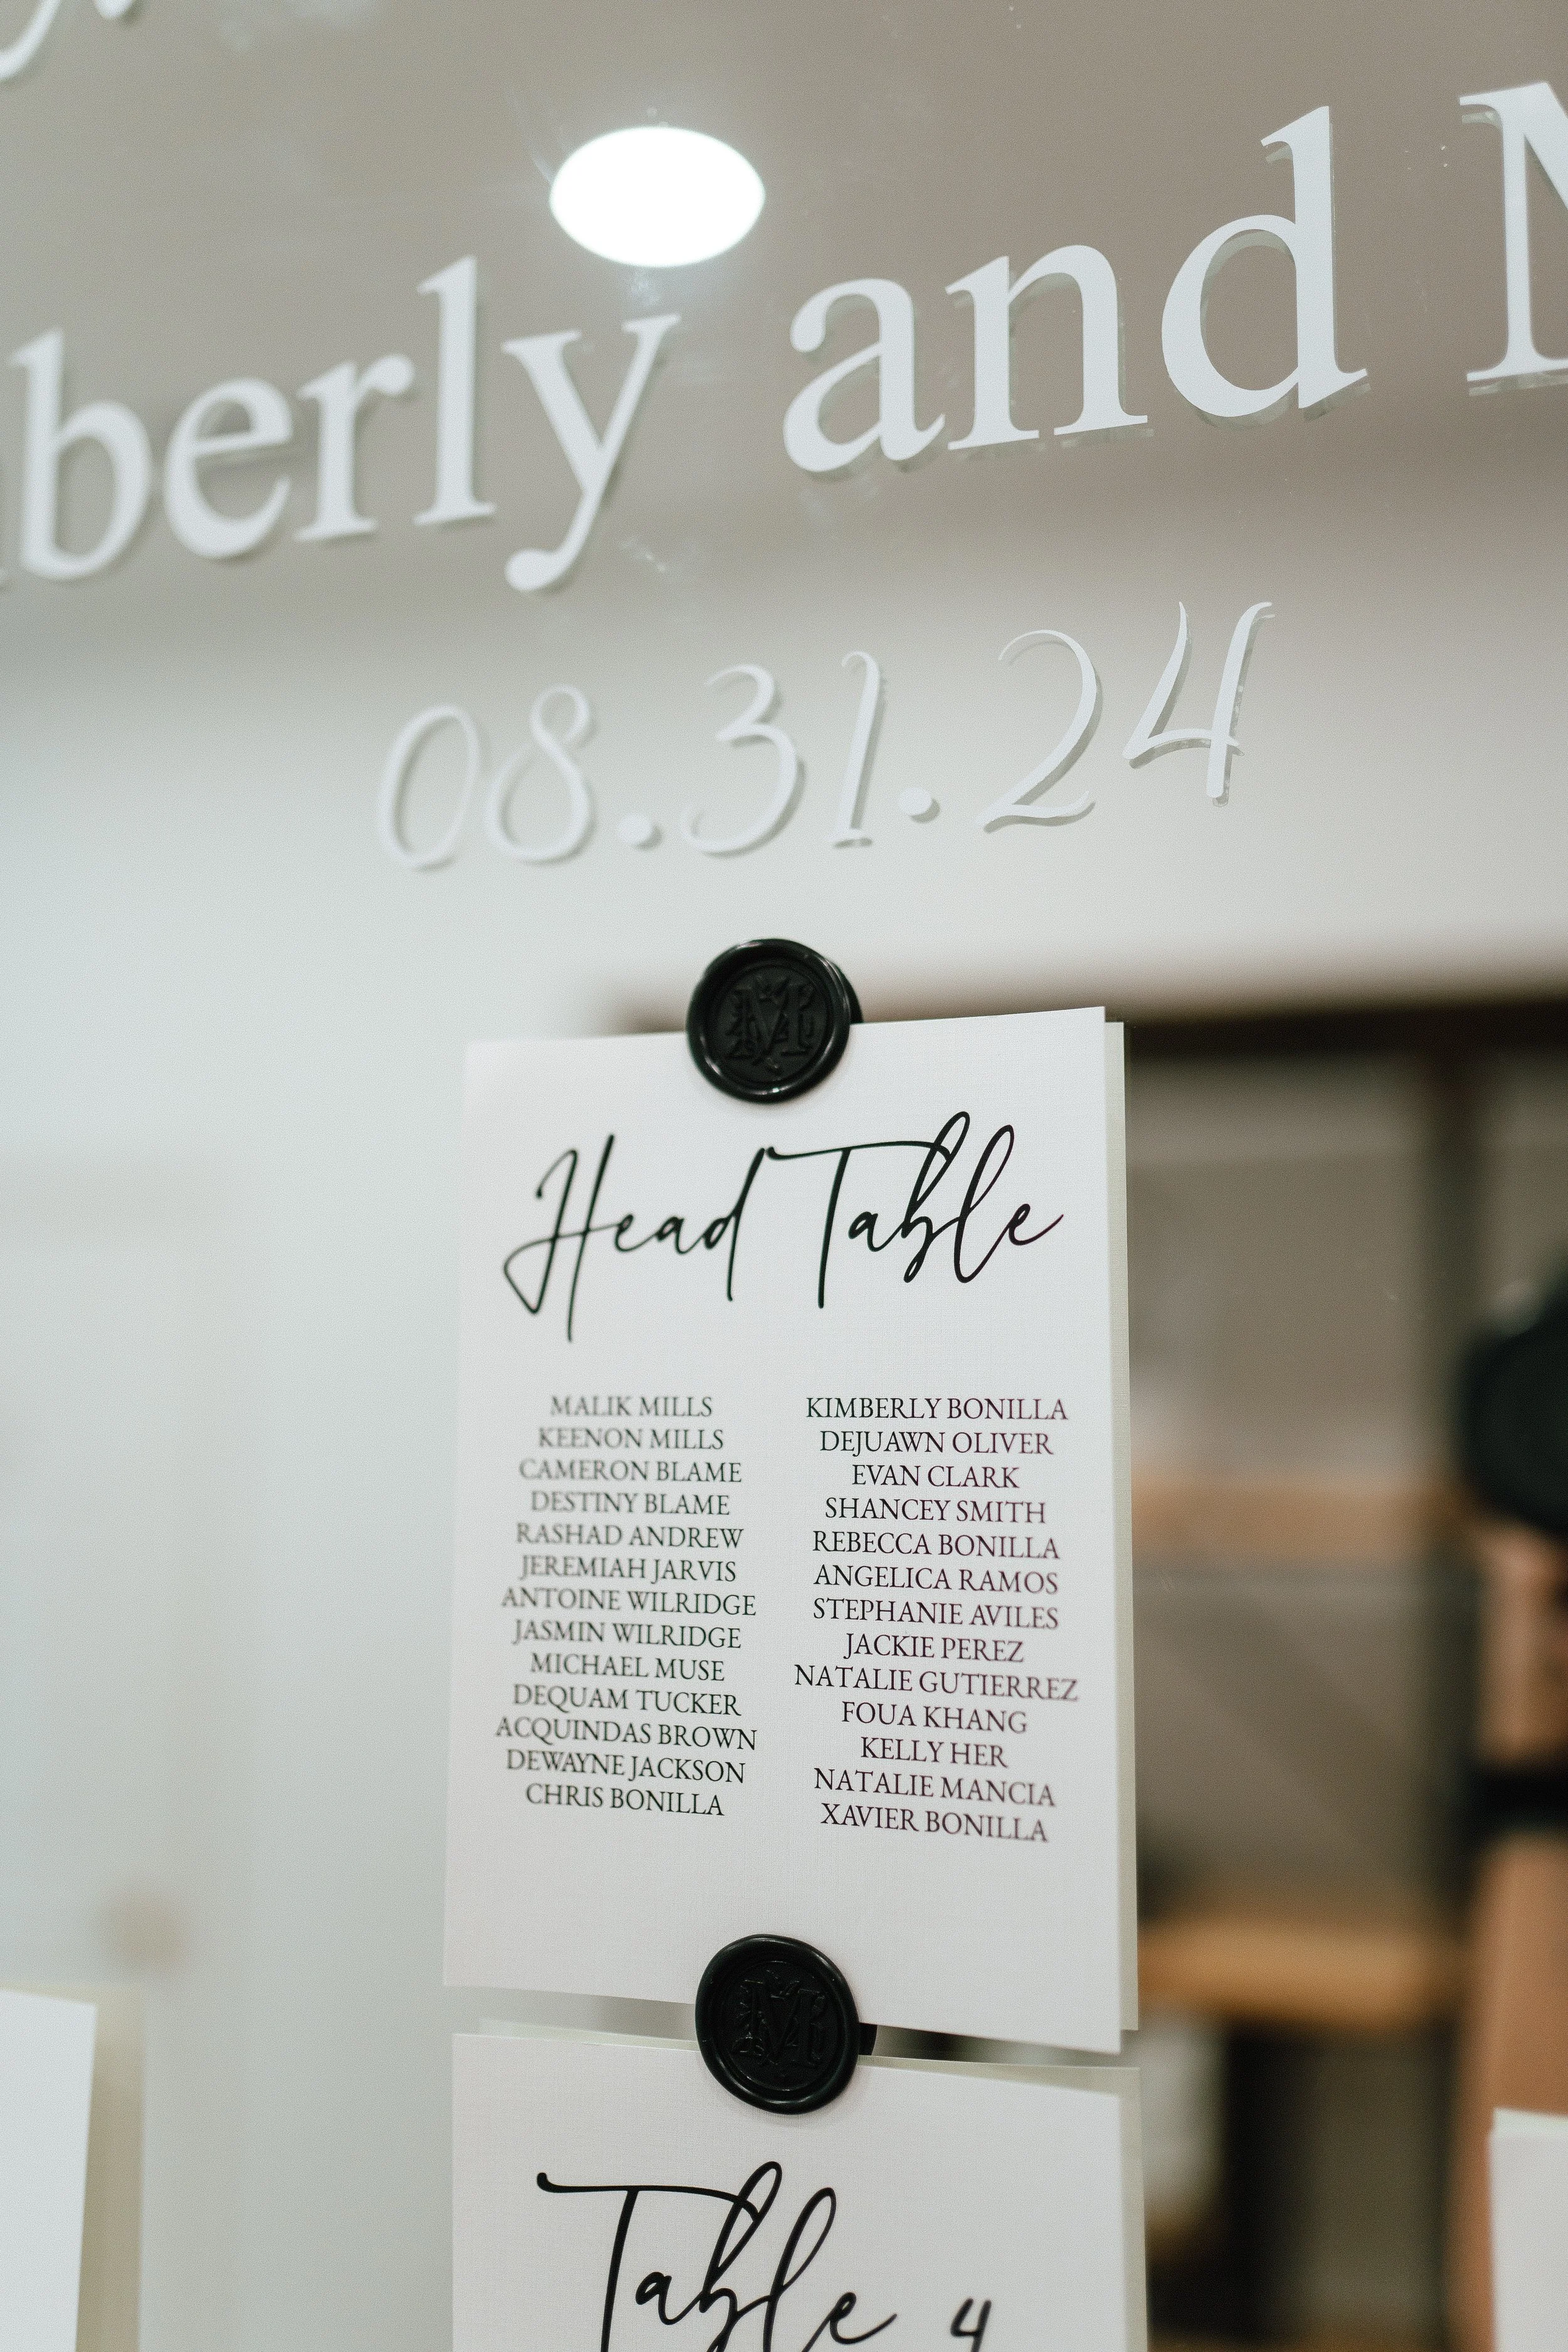 berly and M
08.31.24
M
Head Table
MALIK MILLS
KEENON MILLS
CAMERON BLAME
DESTINY BLAME
RASHAD ANDREW
JEREMIAH JARVIS
ANTOINE WILRIDGE
JASMIN WILRIDGE
MICHAEL MUSE
DEQUAM TUCKER
ACQUINDAS BROWN
DEWAYNE JACKSON
CHRIS BONILLA
KIMBERLY BONILLA
DEJUAWN OLIVER
EVAN CLARK
SHANCEY SMITH
REBECCA BONILLA
ANGELICA RAMOS
STEPHANIE AVILES
JACKIE PEREZ
NATALIE GUTIERREZ
FOUA KHANG
KELLY HER
NATALIE MANCIA
XAVIER BONILLA
M
Table 4